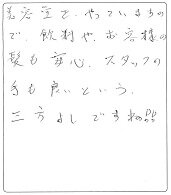 美容室で、やっているもの
で、飲料や、お客様の
髪も安心、スタッフの
手も良いという、
三方よしですね!!